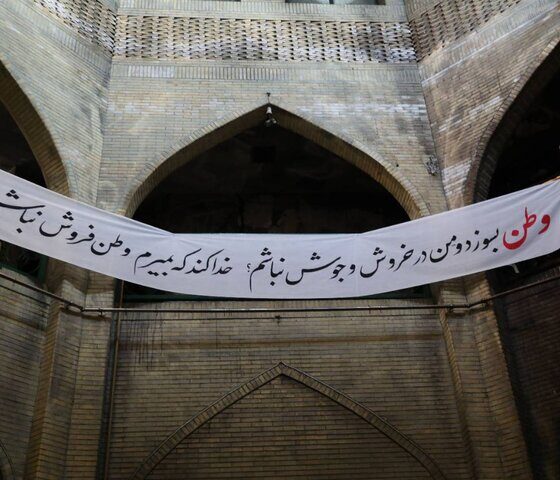 وطن بسوزد و من در خروش و جوش نباشم؟ خدا کند که بمیرم وطن فروش نباش